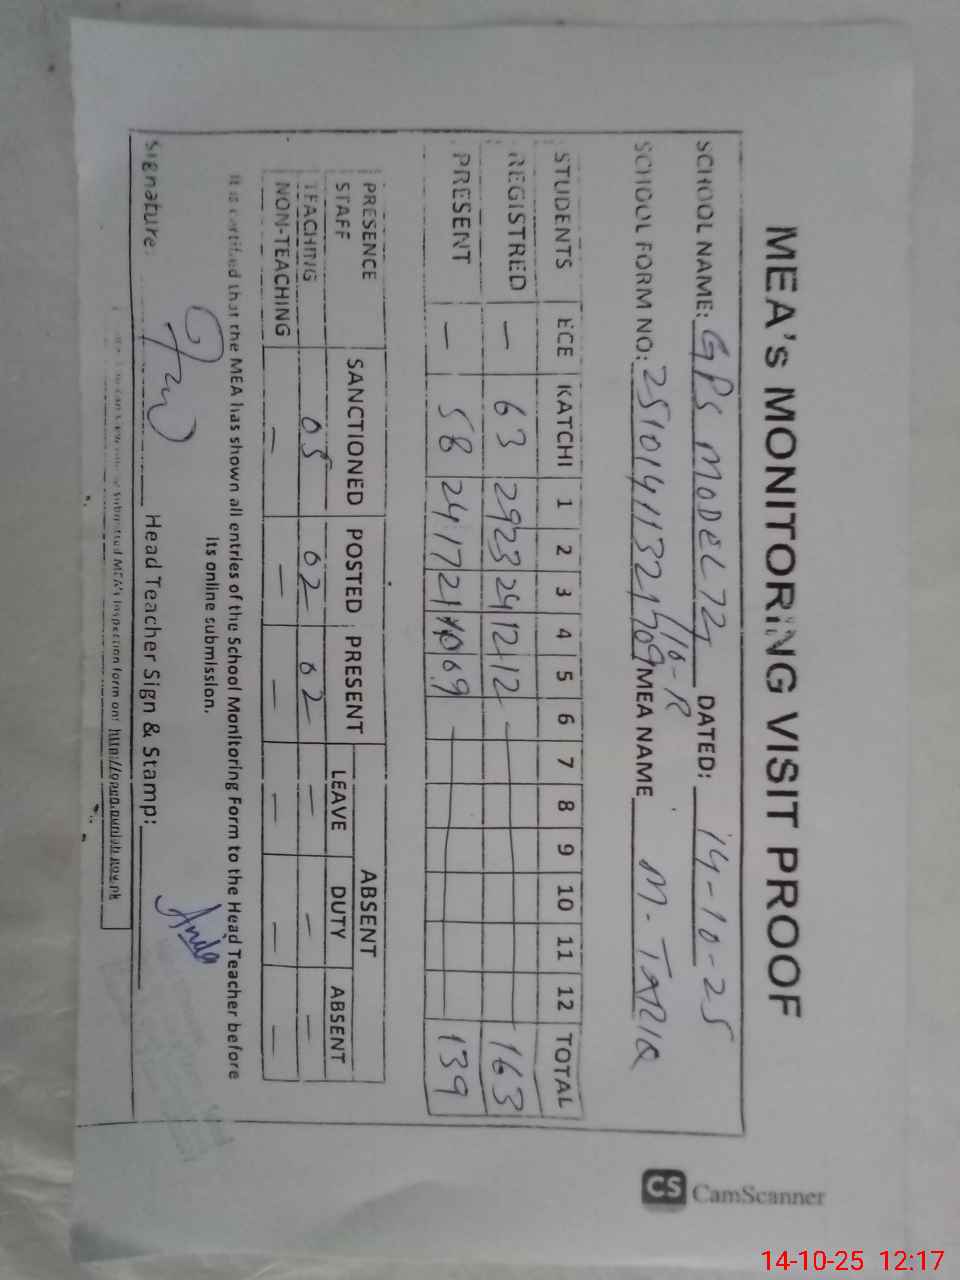 MEA's MONITORING VISIT PROOF
SCHOOL NAME: GPS MODEL 72 DATED: 14-10-25
/10-R
SCHOOL FORM NO: MEA NAME M. TARIQ
STUDENTS ECE KATCHI 1 2 3 4 5 6 7 8 9 10 11 12 TOTAL
REGISTRED — 63 29 23 24 12 12 — 163
PRESENT — 58 24 17 21 10 09 — 139
PRESENCE SANCTIONED POSTED PRESENT ABSENT
STAFF LEAVE DUTY ABSENT
TEACHING 05 02 02 — — —
NON-TEACHING — — — — — —
It is certified that the MEA has shown all entries of the School Monitoring Form to the Head Teacher before
its online submission.
Signature: Head Teacher Sign & Stamp:
submitted MEA's Inspection form on: http://open.punjab.gov.pk
CS CamScanner
14-10-25 12:17